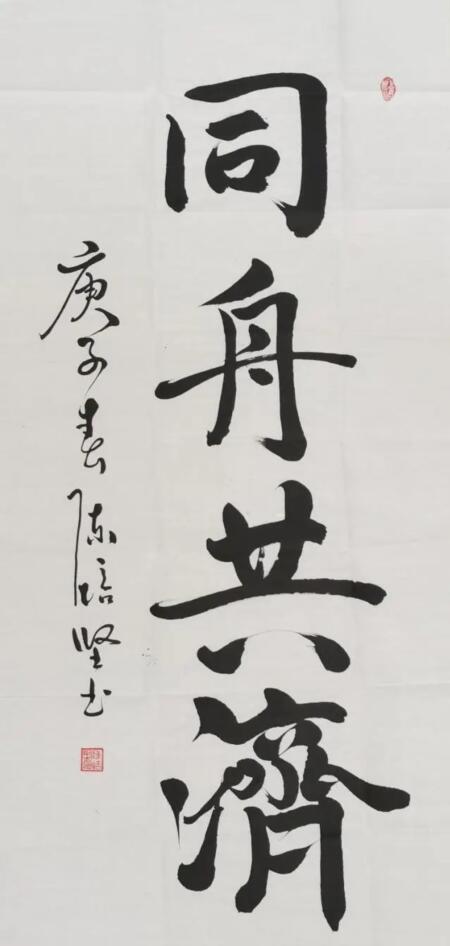 同舟共濟
庚子春陈培坚书